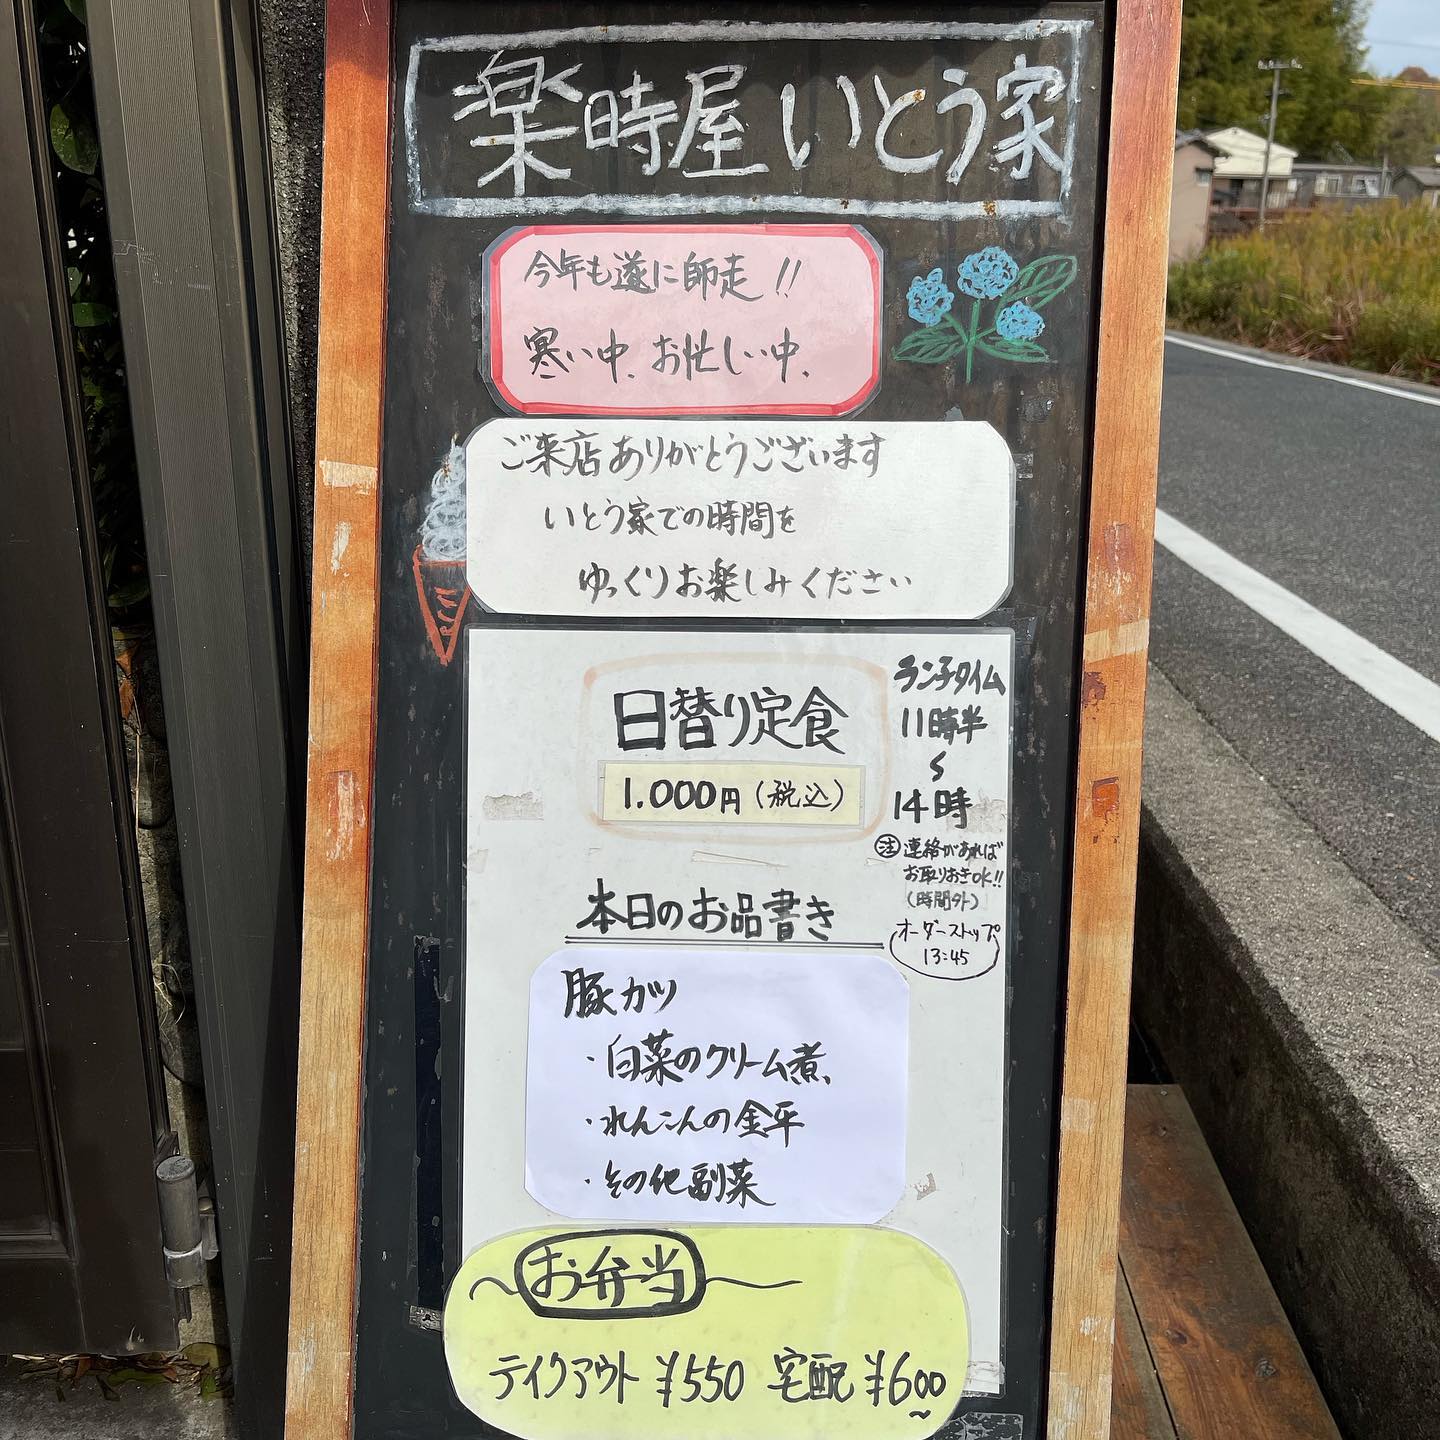 楽時屋 いとう家
今年も遂に師走!!
寒い中、お忙しい中、
ご来店ありがとうございます
いとう家での時間を
ゆっくりお楽しみください
日替り定食
1.000円(税込)
ランチタイム
11時半
~
14時
注 連絡があれば
お取りおきOK!!
(時間外)
オーダーストップ
13:45
本日のお品書き
豚カツ
・白菜のクリーム煮、
・れんこんの金平
・その他副菜
~お弁当~
テイクアウト ¥550 宅配 ¥600~